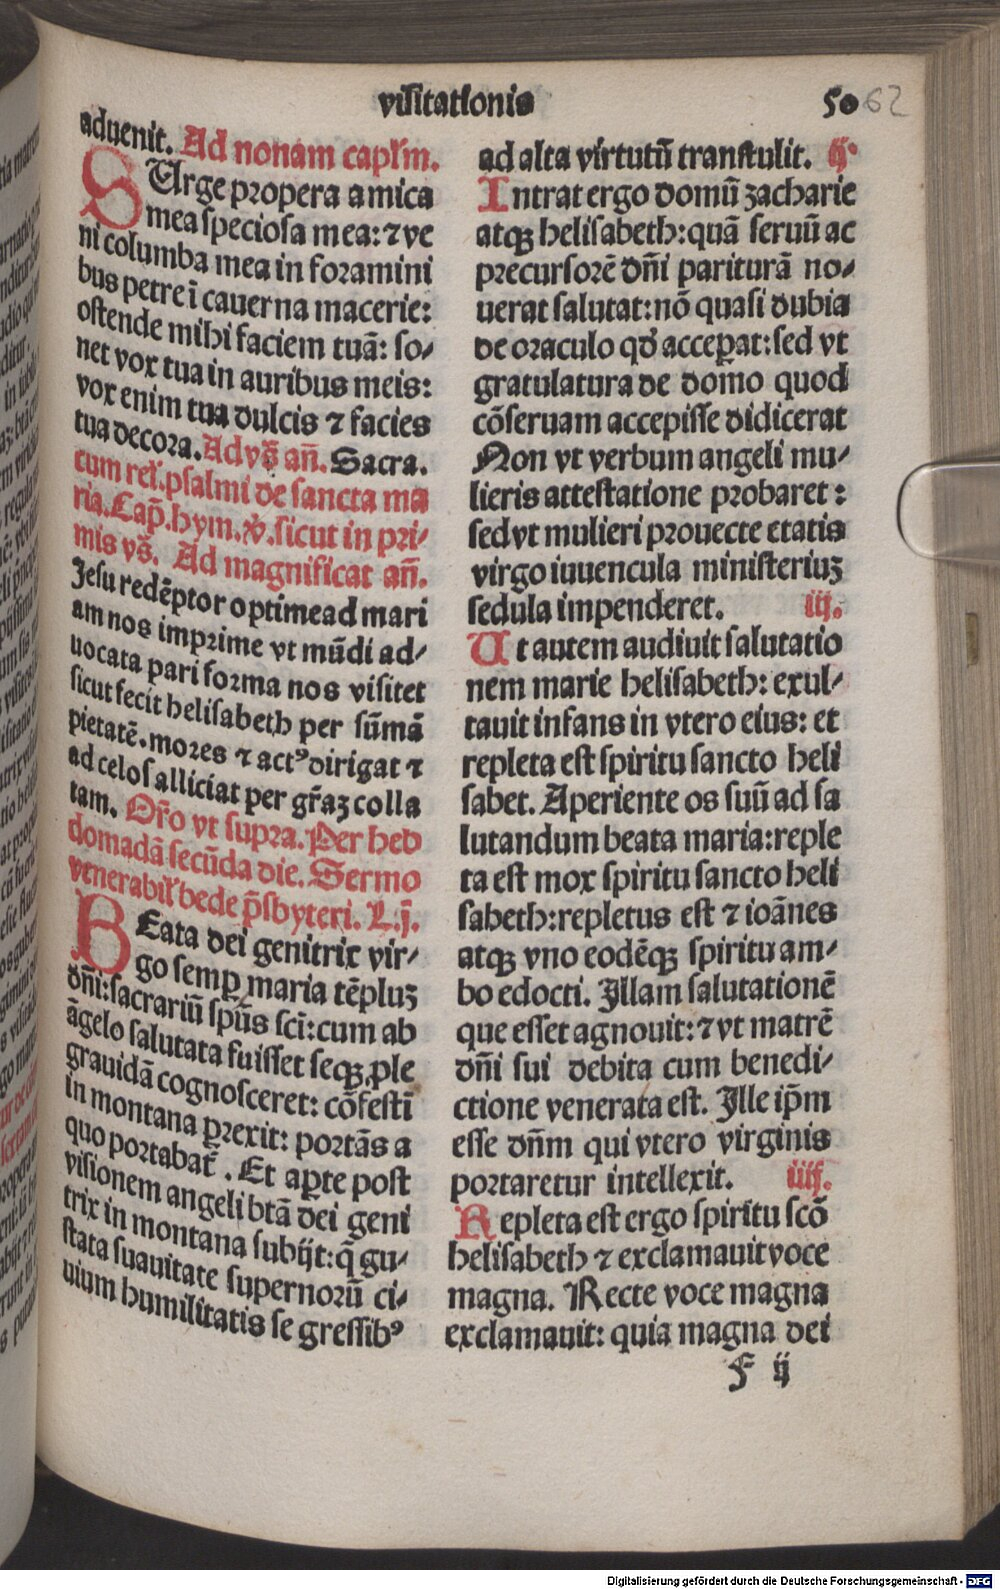 visitationis
50 62
aduenit. Ad nonam capl'm.
SUrge propera amica
mea speciosa mea: ⁊ ve
ni columba mea in foramini
bus petre ī cauerna macerie:
ostende mihi faciem tuā: so⸗
net vox tua in auribus meis:
vox enim tua dulcis ⁊ facies
tua decora. Ad vs̄ an̄. Sacra.
cum rel'. psalmi de sancta ma
ria. Cap̄. hym. v̄. sicut in pri⸗
mis vs̄. Ad magnificat an̄.
Jesu redēptor optime ad mari
am nos imprime vt mūdi ad⸗
uocata pari forma nos visitet
sicut fecit helisabeth per sūmā
pietatē. mores ⁊ actꝰ dirigat ⁊
ad celos alliciat per gr̄aꝫ colla
tam. Or̄o vt supra. Per heb
domadā secūda die. Sermo
venerabil' bede p̄sbyteri. L. j.
BEata dei genitrix vir⸗
go semꝑ maria tēpluꝫ
dn̄i: sacrariū sp̄us sc̄i: cum ab
āgelo salutata fuisset seqꝫ ꝓle
grauidā cognosceret: cōfestī
in montana ꝑrexit: portās a
quo portabat̄. Et aꝑte post
visionem angeli btā dei geni
trix in montana subijt: q̄ gu⸗
stata suauitate supernorū ci⸗
uium humilitatis se gressibꝰ
ad alta virtutū transtulit. ij.
Intrat ergo domū zacharie
atqꝫ helisabeth: quā seruū ac
precursorē dn̄i pariturā no⸗
uerat salutat: nō quasi dubia
de oraculo qd̄ acceꝑat: sed vt
gratulatura de domo quod
cōseruam accepisse didicerat
Non vt verbum angeli mu⸗
lieris attestatione probaret:
sed vt mulieri prouecte etatis
virgo iuuencula ministeriuꝫ
sedula impenderet. iij.
Ut autem audiuit salutatio
nem marie helisabeth: exul⸗
tauit infans in vtero eius: et
repleta est spiritu sancto heli
sabet. Aperiente os suū ad sa
lutandum beata maria: reple
ta est mox spiritu sancto heli
sabeth: repletus est ⁊ ioānes
atqꝫ vno eodēqꝫ spiritu am⸗
bo edocti. Illam salutationē
que esset agnouit: ⁊ vt matrē
dn̄i sui debita cum benedi⸗
ctione venerata est. Ille ip̄m
esse dn̄m qui vtero virginis
portaretur intellexit. iiij.
Repleta est ergo spiritu scō
helisabeth ⁊ exclamauit voce
magna. Recte voce magna
exclamauit: quia magna dei
F ij
Digitalisierung gefördert durch die Deutsche Forschungsgemeinschaft - DFG